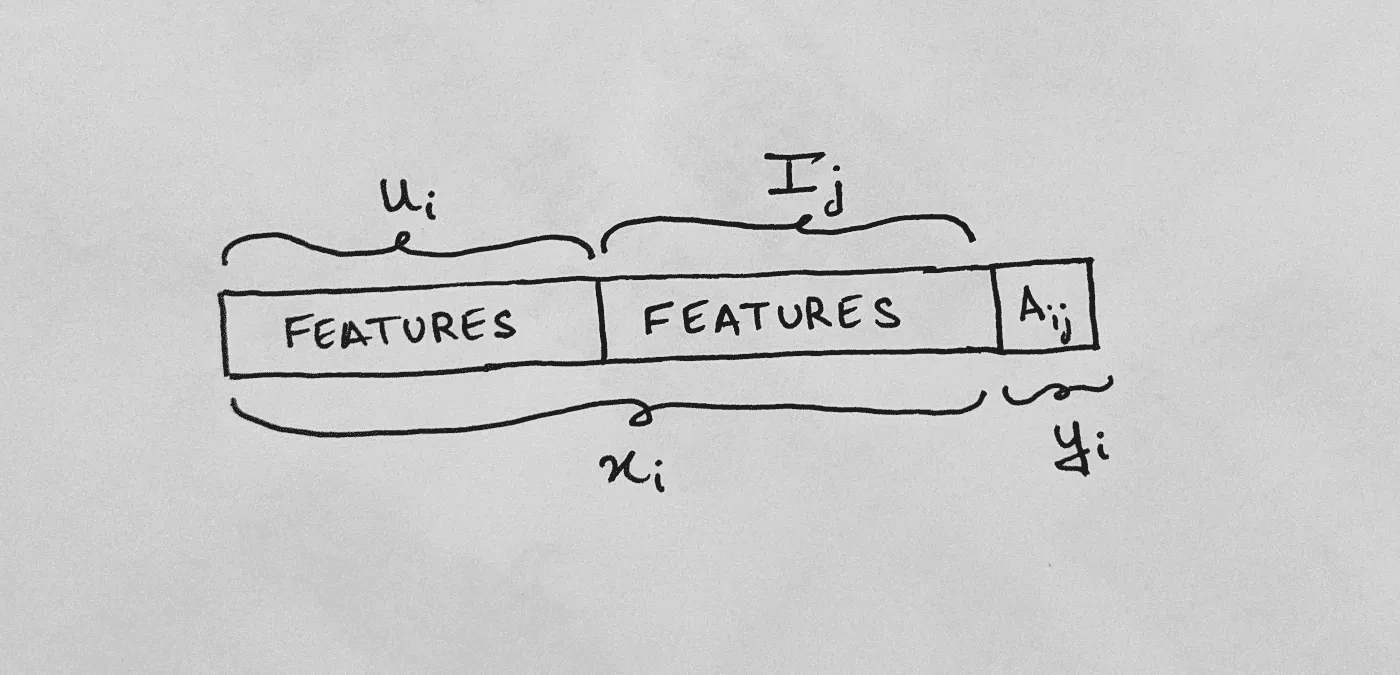 u_i I_j
FEATURES FEATURES A_ij
x_i y_i